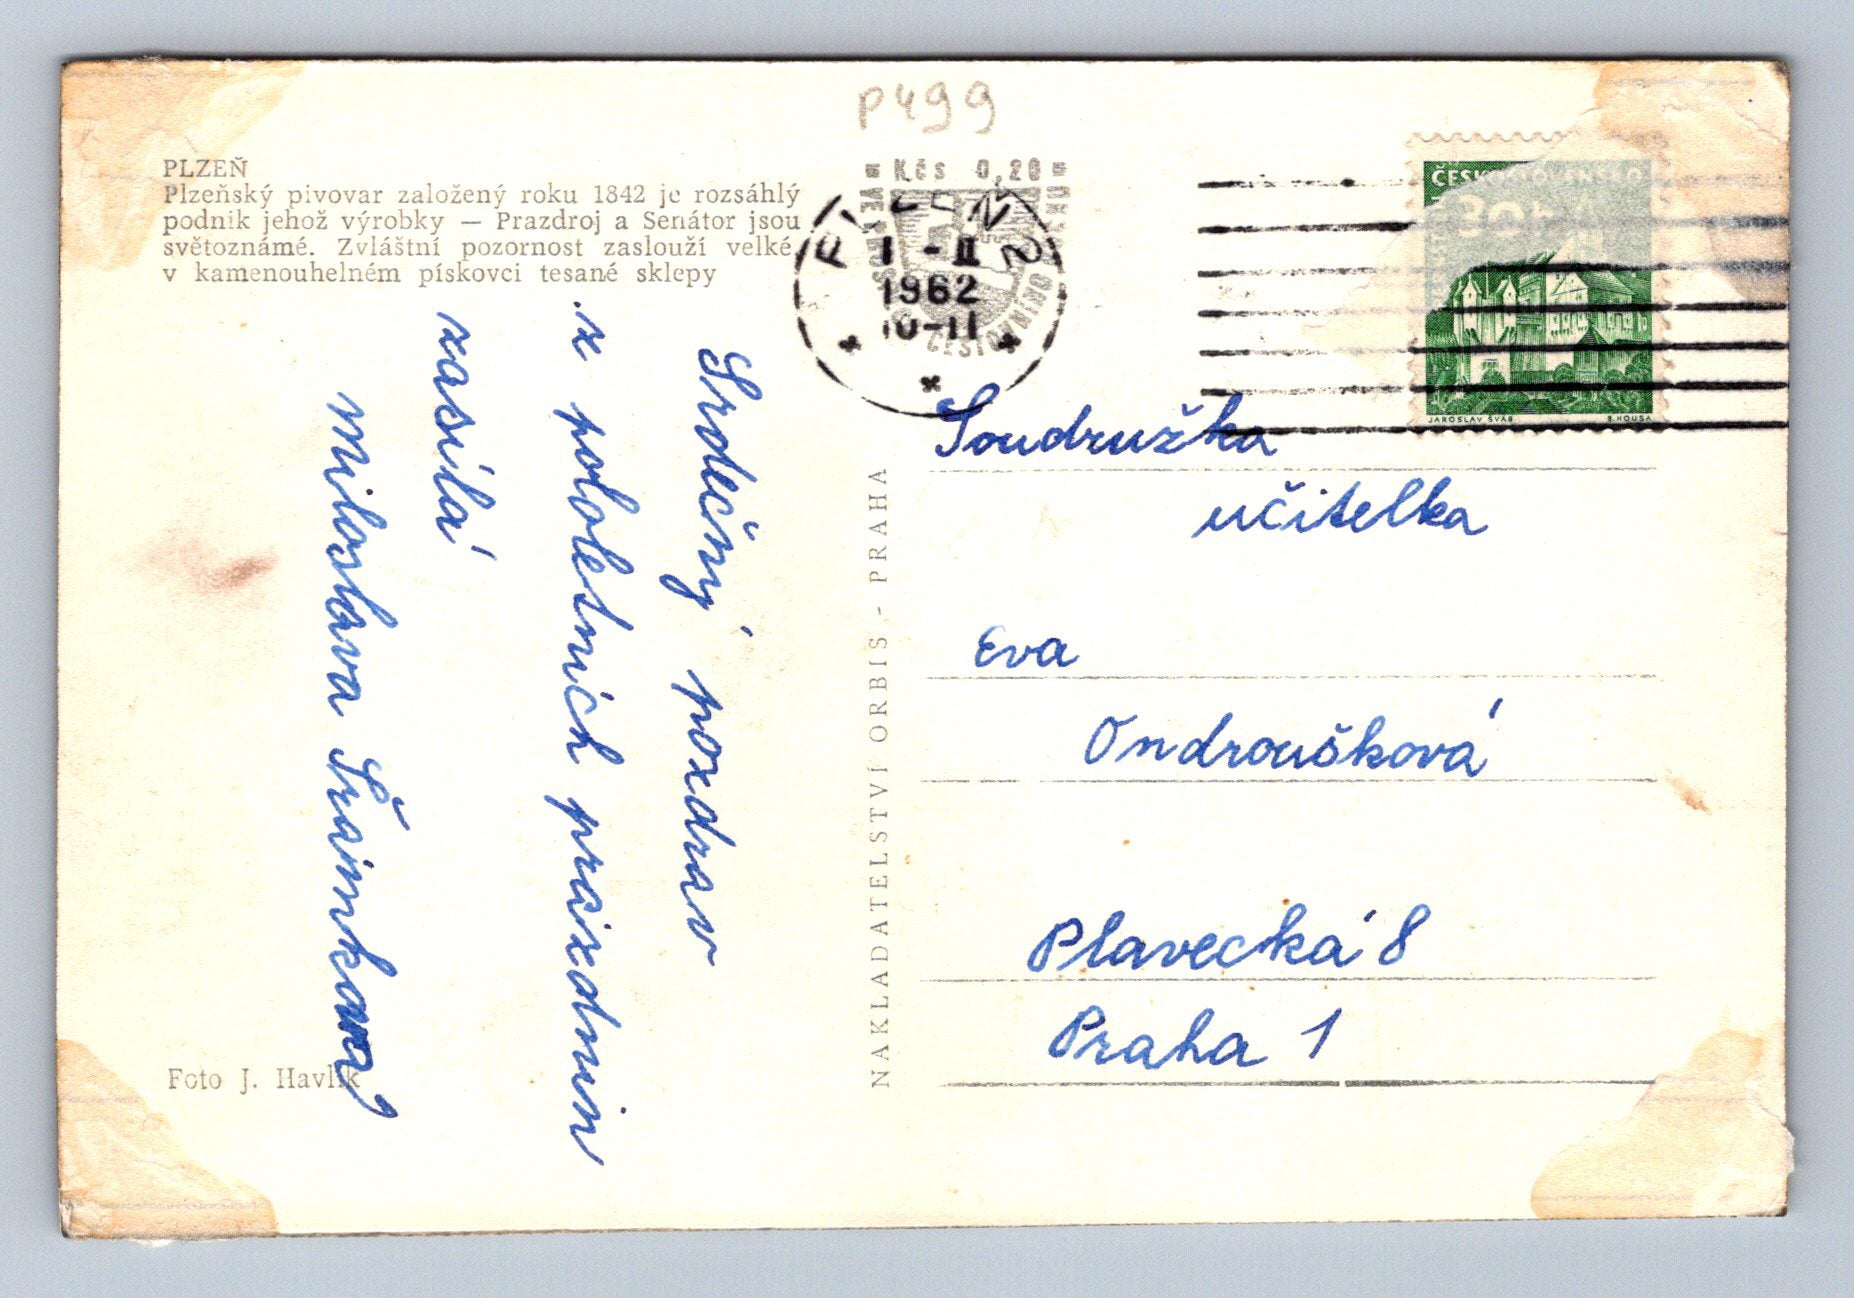 P499
PLZEŇ
Plzeňský pivovar založený roku 1842 je rozsáhlý
podnik jehož výrobky — Prazdroj a Senátor jsou
světoznámé. Zvláštní pozornost zaslouží velké,
v kamenouhelném pískovci tesané sklepy
Srdečný pozdrav
z pololetních prázdnin
zasílá
Miloslava Šrámková
Foto J. Havlík
NAKLADATELSTVÍ ORBIS - PRAHA
Kčs 0,20
PLZEŇ 2
1 -II
1962
10-11
ČESKOSLOVENSKO
30
JAROSLAV ŠVÁB
B. HOUSA
Soudružka
učitelka
Eva
Ondroušková
Plavecká 8
Praha 1